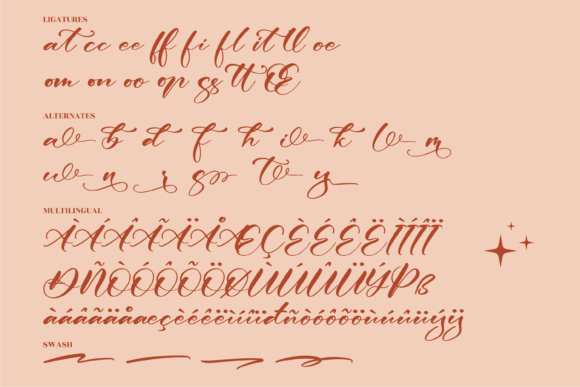 LIGATURES
at cc ee ff fi fl it ll oe
om on oo op ss tt Œ
ALTERNATES
a b d f h i k l m
u n r s t y
MULTILINGUAL
ÀÁÂÃÄÅÆÇÈÉÊËÌÍÎÏ
ÐÑÒÓÔÕÖØÙÚÛÜÝÞß
àáâãäåæçèéêëìíîïđñòóôõöùúûüýÿ
SWASH